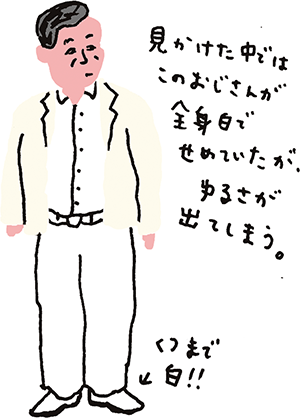 見かけた中では
このおじさんが
全身白で
せめていたが、
ゆるさが
出てしまう。
くつまで
白!!